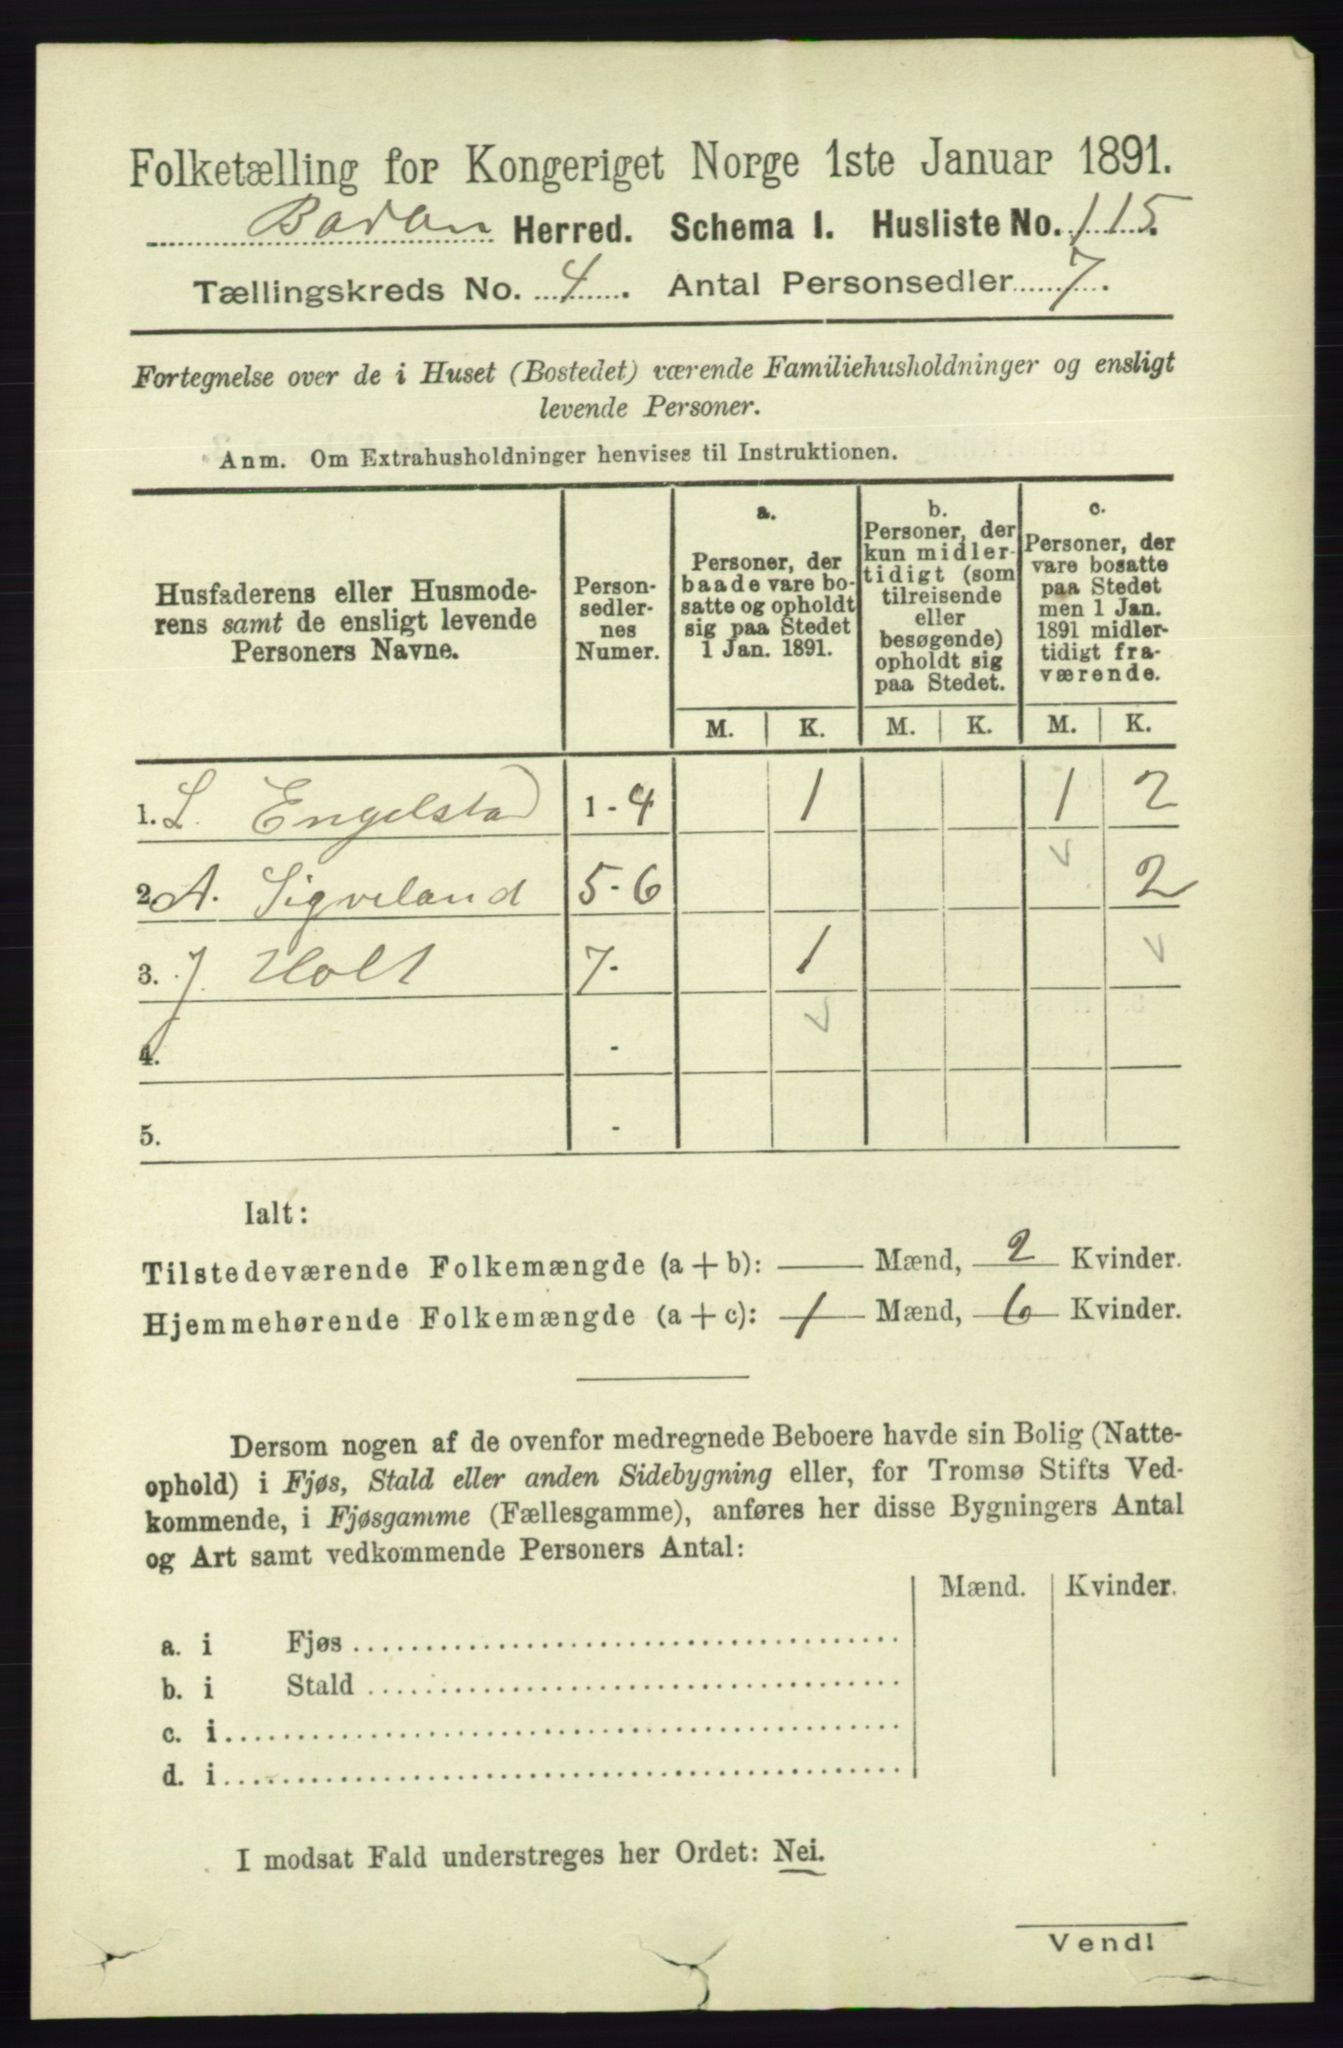 Folketælling for Kongeriget Norge 1ste Januar 1891.
Herred. Schema I. Husliste No. 115.
Tællingskreds No. 4. Antal Personsedler 7.
Fortegnelse over de i Huset (Bostedet) værende Familiehusholdninger og ensligt
levende Personer.
Anm. Om Extrahusholdninger henvises til Instruktionen.
Husfaderens eller Husmode-
rens samt de ensligt levende
Personers Navne.
Person-
sedler-
nes
Numer.
a.
Personer, der
baade vare bo-
satte og opholdt
sig paa Stedet
1 Jan. 1891.
b.
Personer, der
kun midler-
tidigt (som
tilreisende
eller
besøgende)
opholdt sig
paa Stedet.
c.
Personer, der
vare bosatte
paa Stedet
men 1 Jan.
1891 midler-
tidigt fra-
værende.
M. K. M. K. M. K.
1. L. Engelstad 1-4 1 1 2
2. A. Sigveland 5-6 2
3. J. Holt 7- 1
4. -
5. -
Ialt:
Tilstedeværende Folkemængde (a + b): — Mænd, 2 Kvinder.
Hjemmehørende Folkemængde (a + c): 1 Mænd, 6 Kvinder.
Dersom nogen af de ovenfor medregnede Beboere havde sin Bolig (Natte-
ophold) i Fjøs, Stald eller anden Sidebygning eller, for Tromsø Stifts Ved-
kommende, i Fjøsgamme (Fællesgamme), anføres her disse Bygningers Antal
og Art samt vedkommende Personers Antal:
Mænd. Kvinder.
a. i Fjøs
b. i Stald
c. i
d. i
I modsat Fald understreges her Ordet: Nei.
Vend!